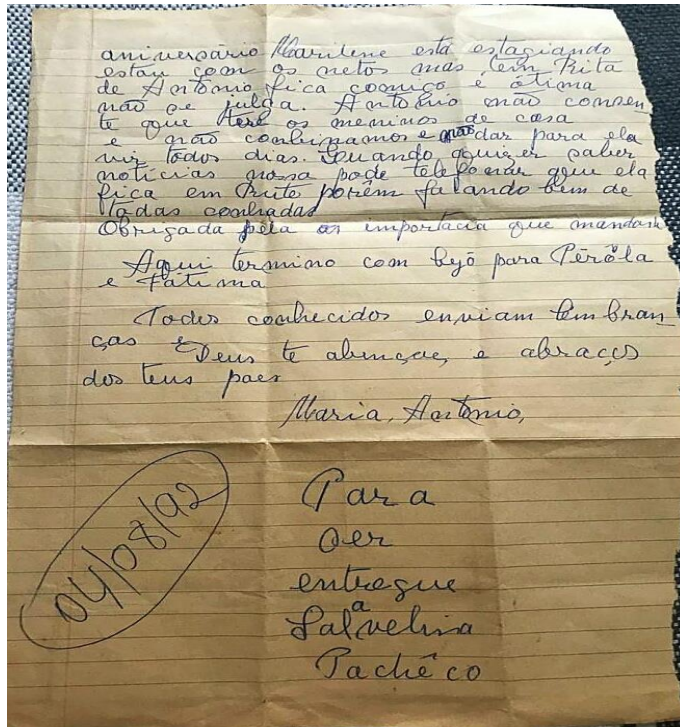 aniversário Marilene está estagiando
estau com os netos mas tem Rita
de Antônio fica comigo é ótima
não se julga. Antônio não consen
te que tere os meninos de casa
e não conbinamos e não dar para ela
vir todos dias. Quando quizer saber
noticias nossa pode telefonar que ela
fica em Rute porém falando bem de
todas
Obrigada pela as importacia que mandam
Aqui termino com bejo para Pérôla
e Fátima
Todos conhecidos enviam lembran_
ças e Deus te abençoe, e abraços
dos teus paes
Maria, Antonio,
04/08/92
Para
ser
entregue
a
Salvelina
Pachêco